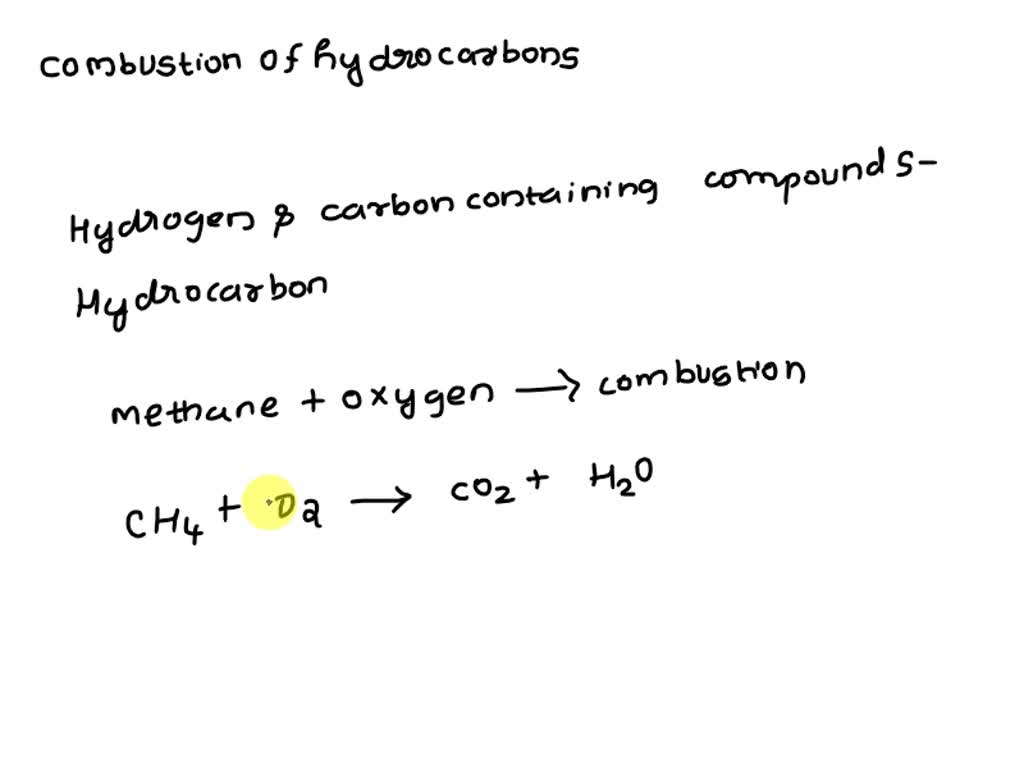 combustion of hydrocarbons
Hydrogen & carbon containing compounds-
Hydrocarbon
methane + oxygen → combustion
CH₄ + O₂ → CO₂ + H₂O